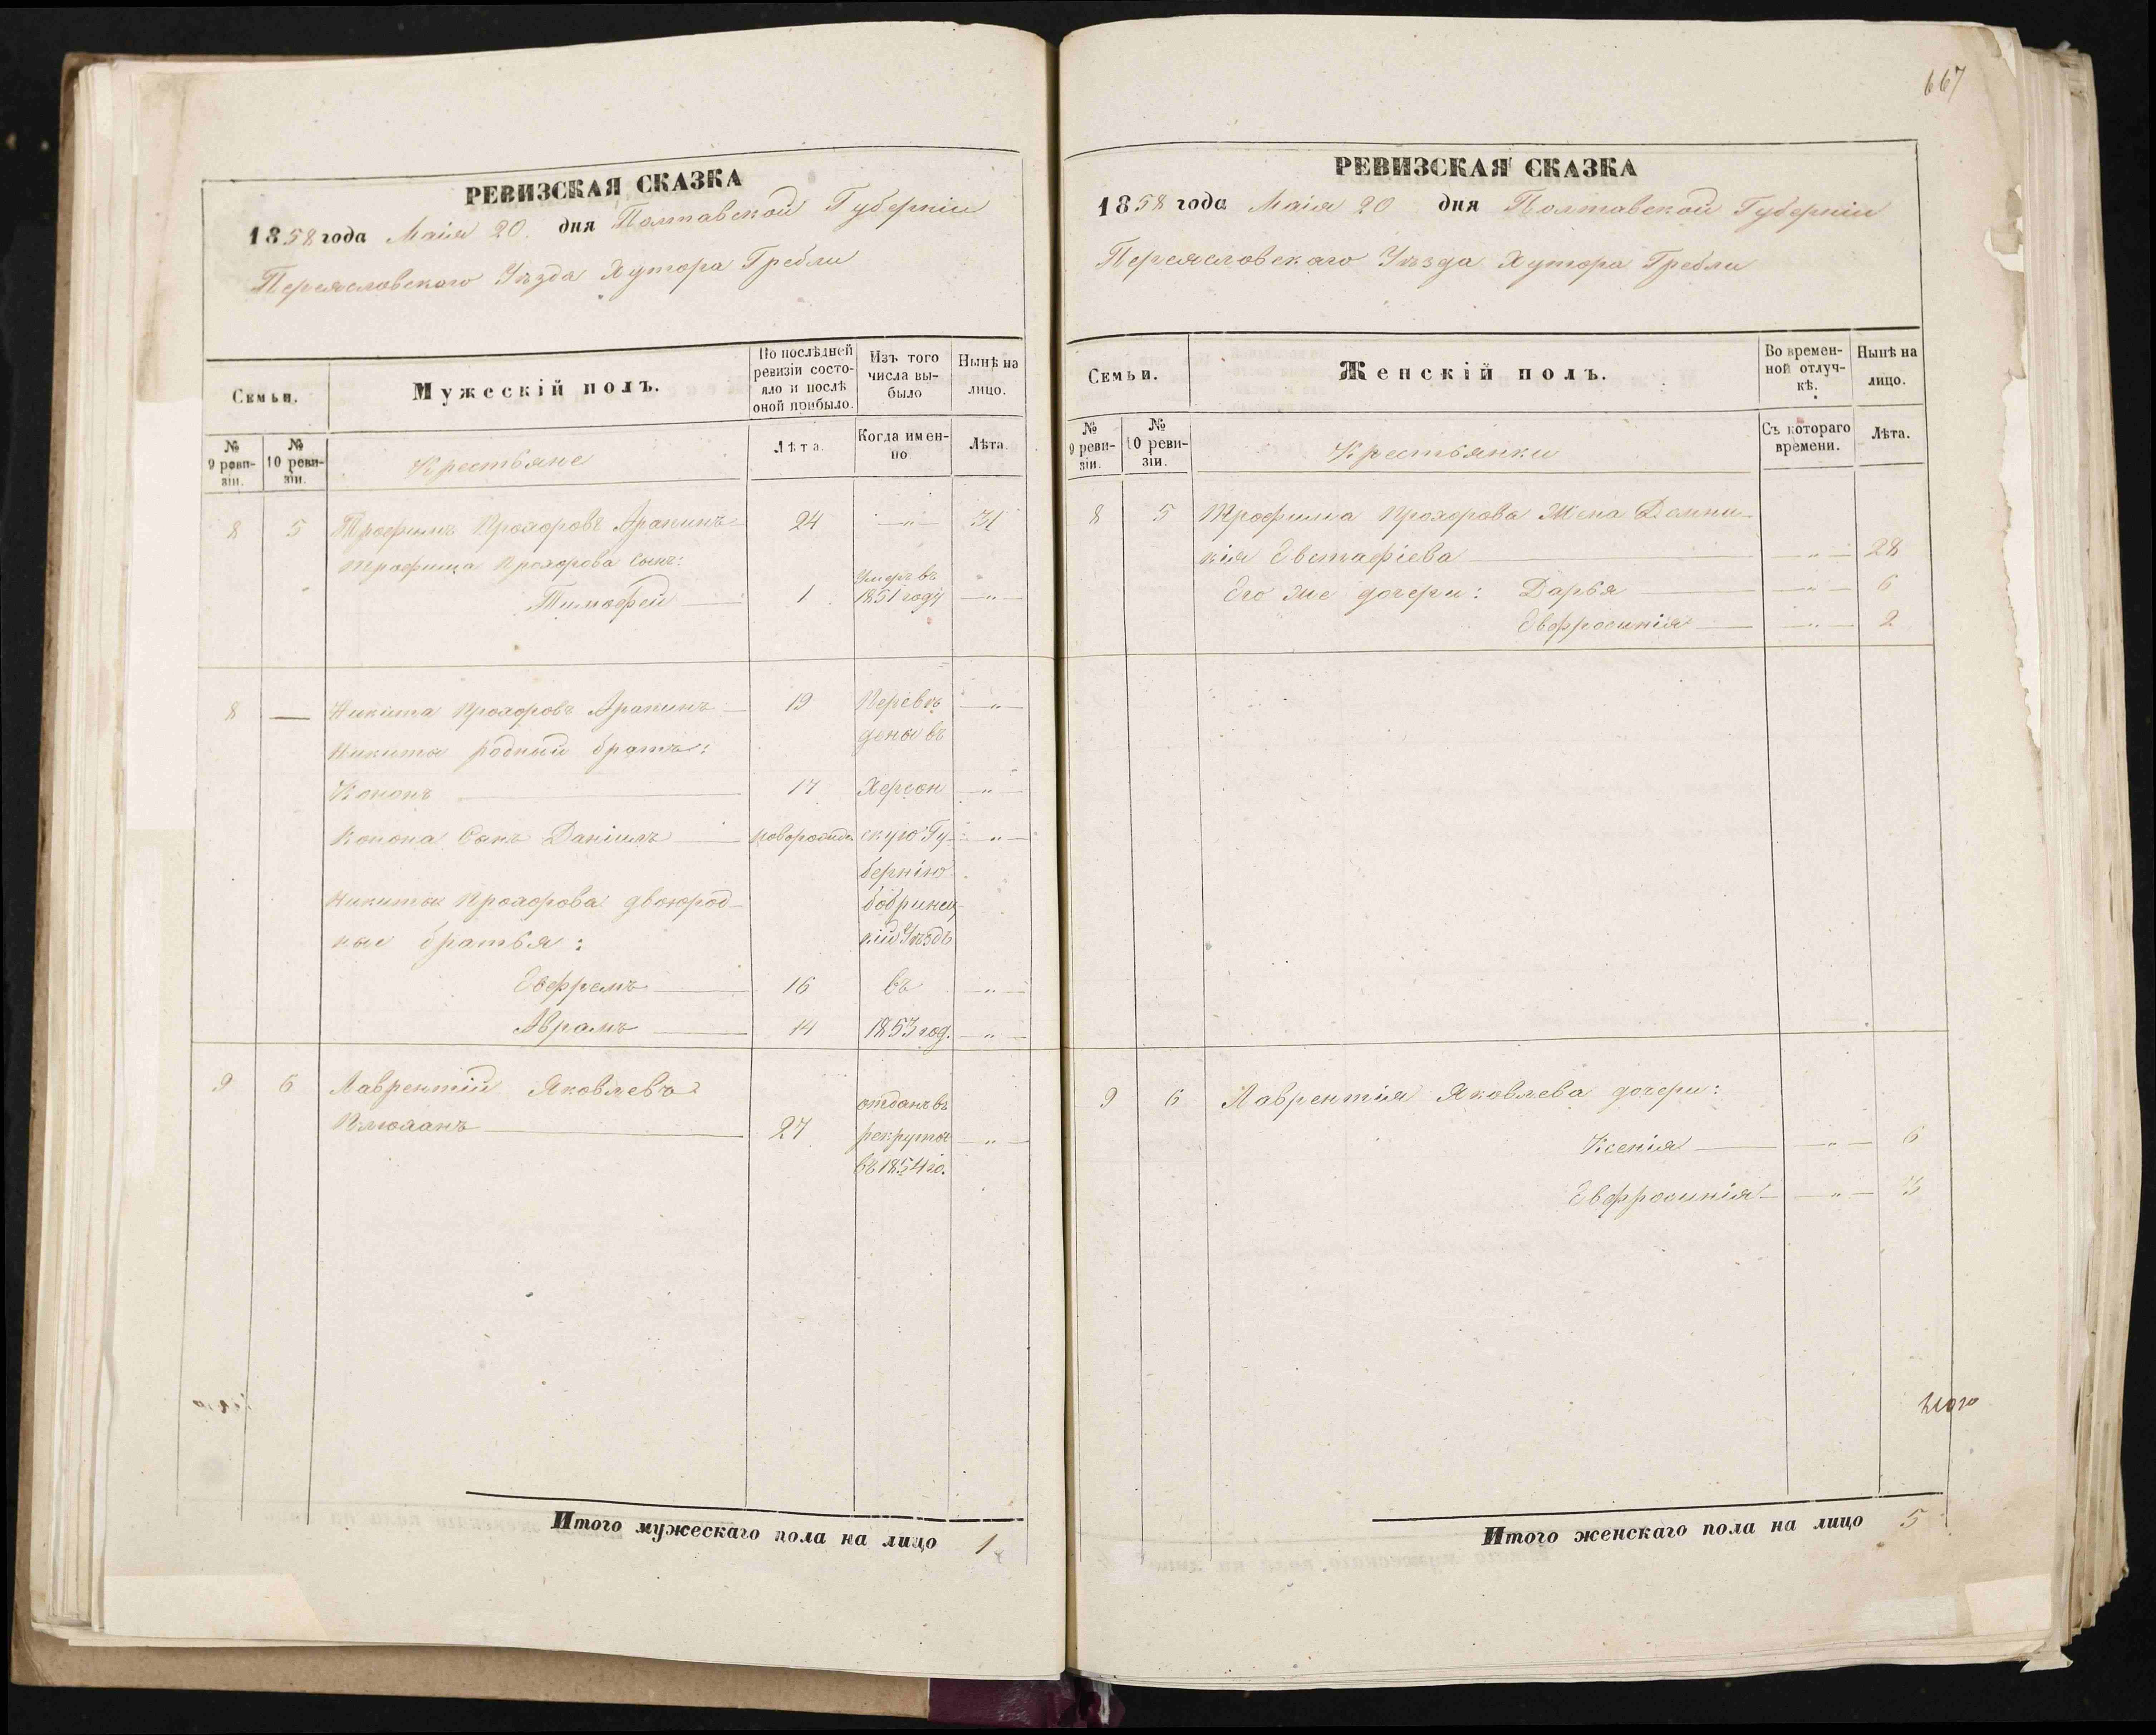 РЕВИЗСКАЯ СКАЗКА
1858 года Маія 20 дня Полтавской Губерніи
Переясловскаго Уѣзда Хутора Гребли
Семьи.
Мужескій полъ.
По послѣдней ревизіи состояло и послѣ оной прибыло.
Изъ того числа выбыло
Нынѣ на лицо.
№ 9 ревизіи.
№ 10 ревизіи.
Крестьяне
Лѣта.
Когда именно
Лѣта.
8 5 Трофимъ Прохоровъ Арапинъ 24 —"— 31
Трофима Прохорова сынъ:
Тимофей 1 умеръ въ 1851 году —"—
8 — Никита Прохоровъ Арапинъ 19 Переве —"—
Никиты родный братъ: дены въ
Кононъ 17 Херсон —"—
Конона Сынъ Даніилъ новорожде скую Гу —"—
бернію
Никиты Прохорова двоюрод бобринец
ные братья: кій Уѣздъ
Евфремъ 16 въ —"—
Аврамъ 14 1853 год. —"—
9 6 Лаврентій Яковлевъ отданъ въ
27 рекруты —"—
въ 1854 го.
Итого мужескаго пола на лицо 1
667
РЕВИЗСКАЯ СКАЗКА
1858 года Маія 20 дня Полтавской Губерніи
Переясловскаго Уѣзда Хутора Гребли
Семьи.
Женскій полъ.
Во временной отлучкѣ.
Нынѣ на лицо.
№ 9 ревизіи.
№ 10 ревизіи.
Крестьянки
Съ котораго времени.
Лѣта.
8 5 Трофима Прохорова Жена Домни
кія Евстафіева —"— 28
Его же дочери: Дарья —"— 6
Евфросинія —"— 2
9 6 Лаврентія Яковлева дочери:
Ксенія —"— 6
Евфросинія —"— 3
Итого женскаго пола на лицо 5